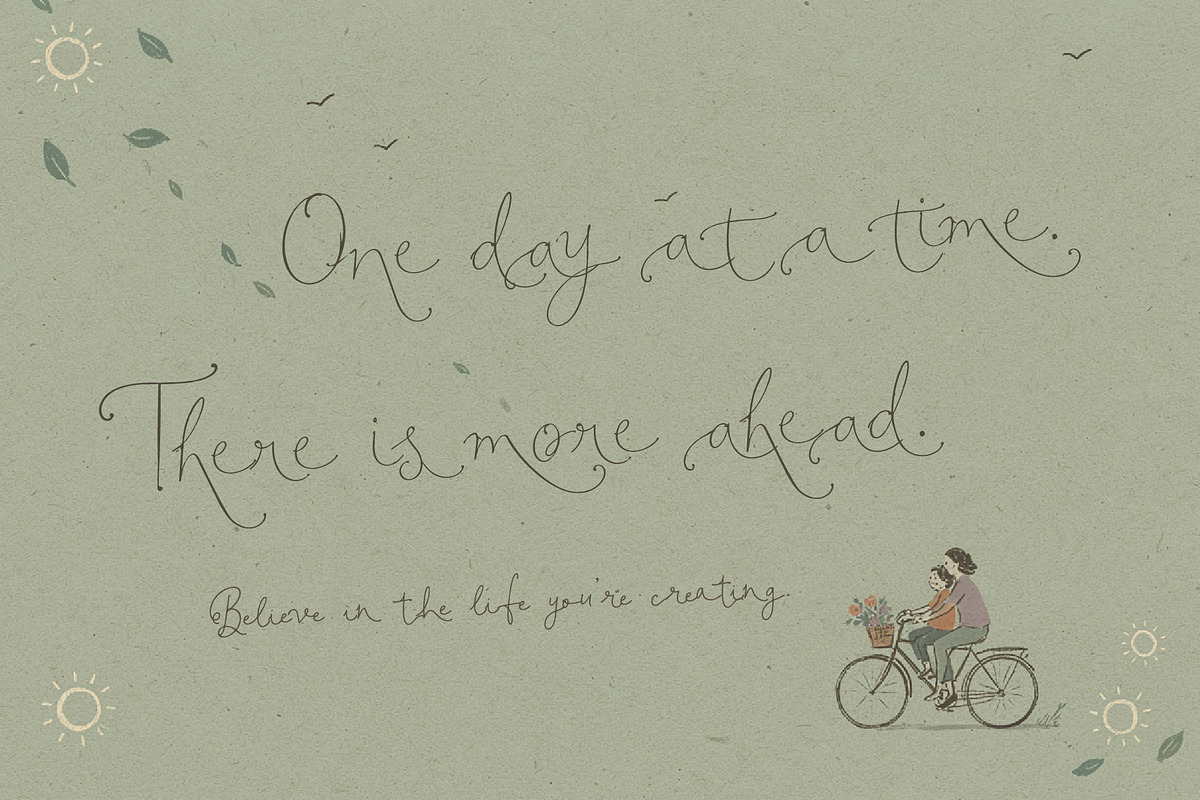 One day at a time.
There is more ahead.
Believe in the life you're creating.